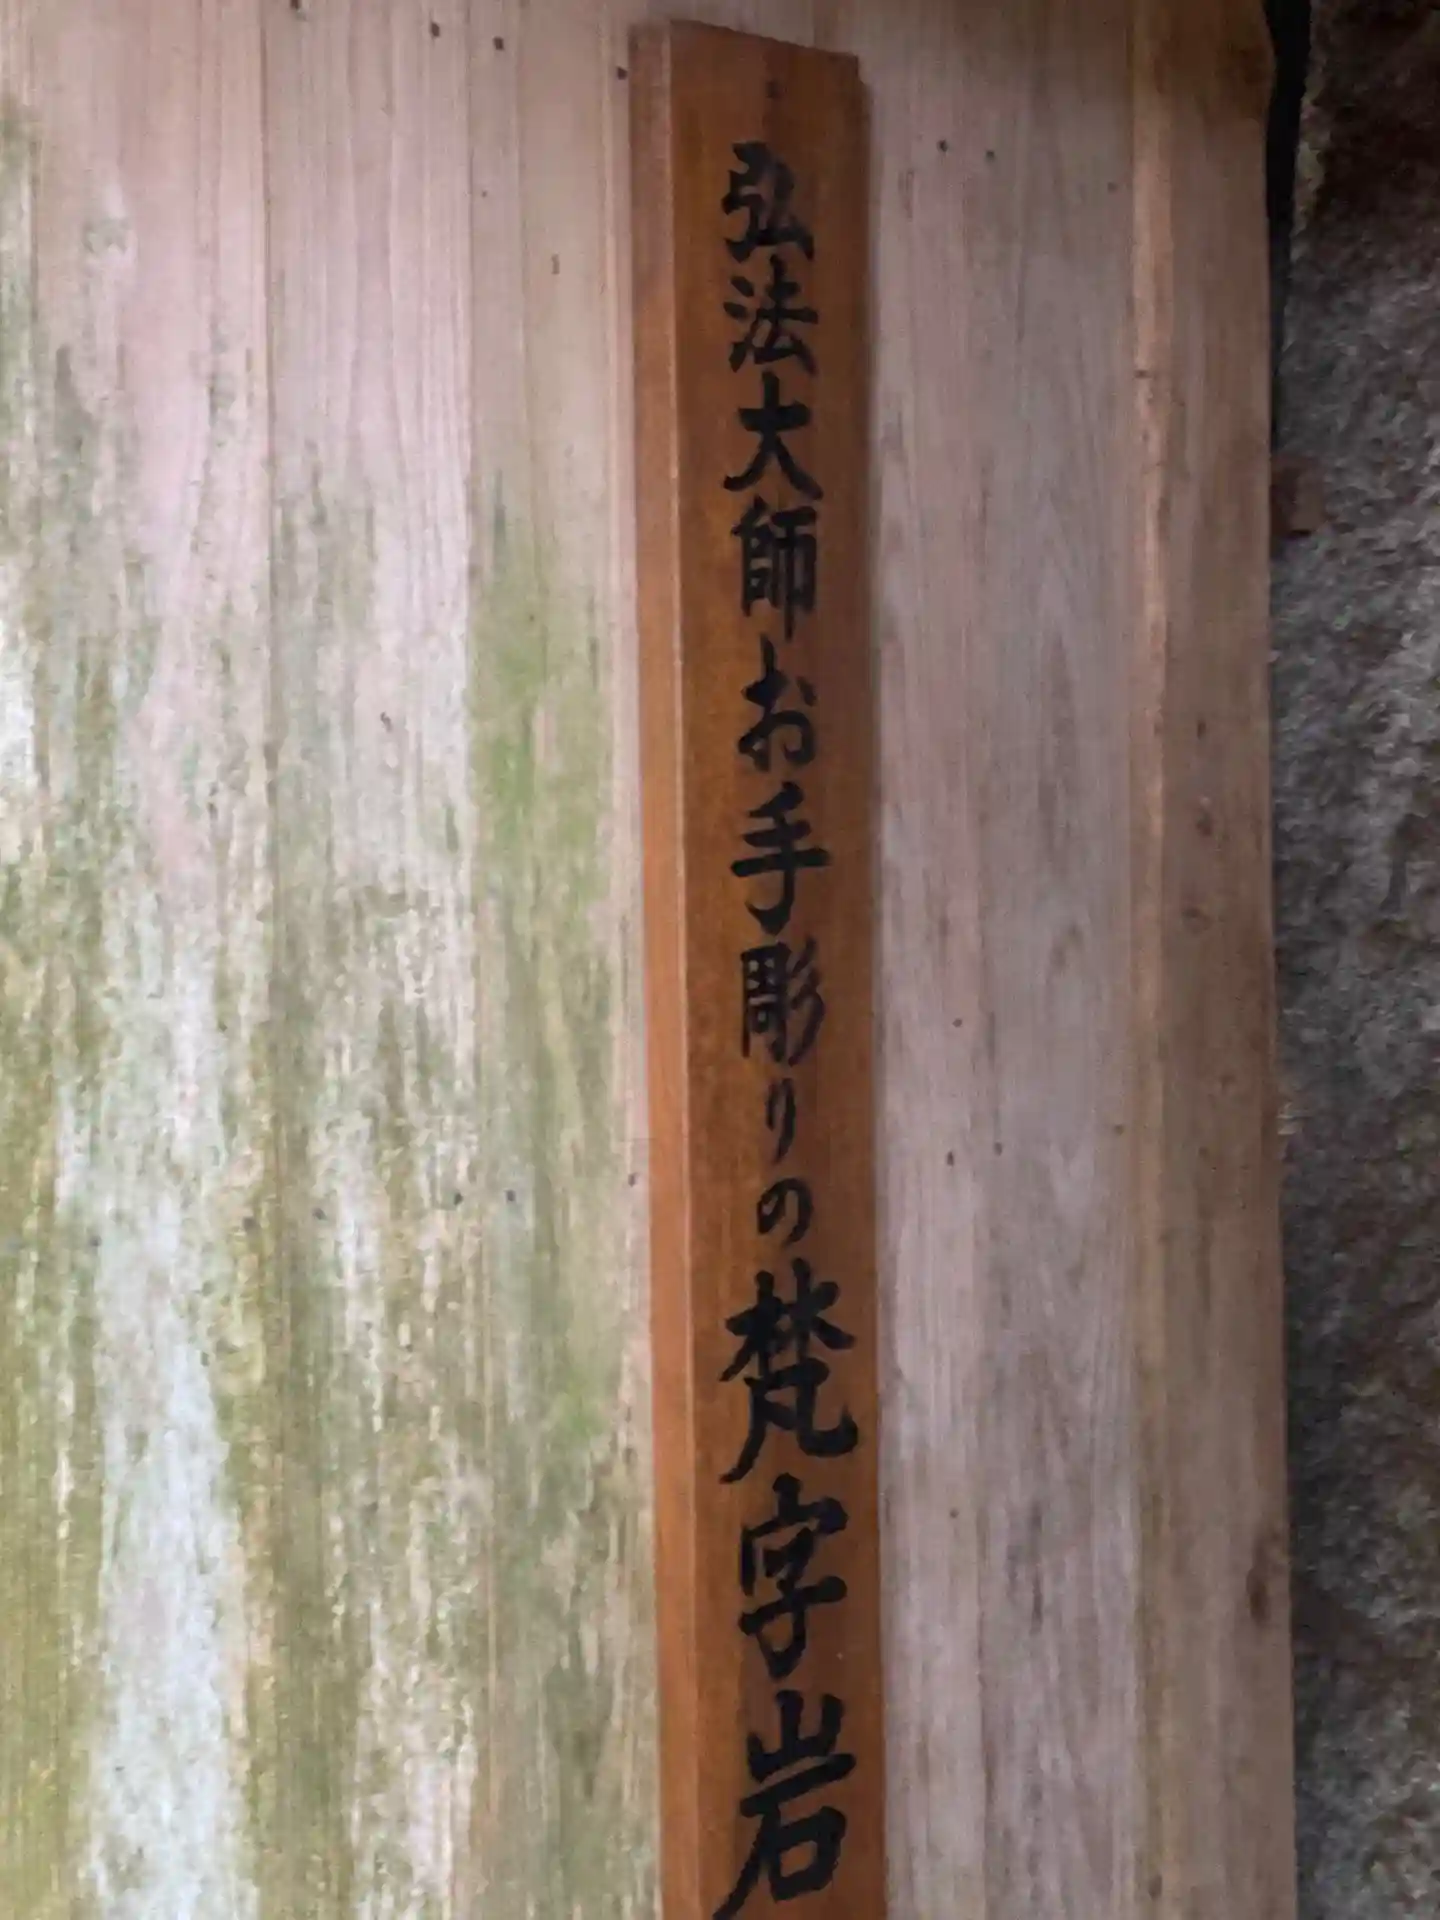 弘法大師お手彫りの梵字岩